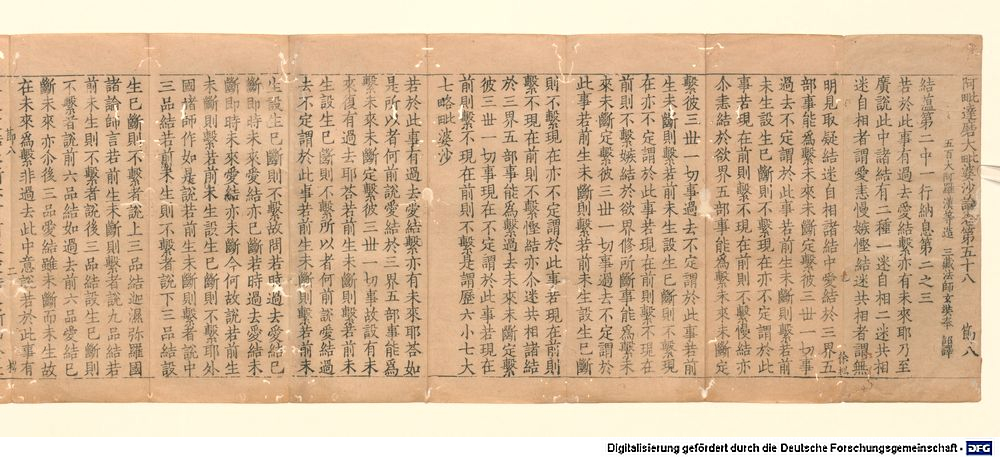 阿毗達磨大毗婆沙論卷第五十八 節八
五百大阿羅漢等造 三藏法師玄奘奉 詔譯
結蘊第二中一行納息第二之三
若於此事有過去愛結繫亦有未來耶乃至
廣說此中諸結有二種一迷自相二迷共相
迷自相者謂愛恚慢嫉慳結迷共相者謂無
明見取疑結迷自相諸結中愛結於三界五
部事能為繫未來未斷定繫彼三世一切事
過去不定謂於此事若前生未斷則繫若前
未生設生已斷則不繫現在亦不定謂於此
事若現在前則繫不現在前則不繫慢結亦
尒恚結於欲界五部事能為繫未來未斷定
繫彼三世一切事過去不定謂於此事若前
生未斷則繫若前未生設生已斷則不繫現
在亦不定謂於此事若現在前則繫不現在
前則不繫嫉結於欲界修所斷事能為繫未
來未斷定繫彼三世一切事過去不定謂於
此事若前生未斷則繫若前未生設生已斷
則不繫現在亦不定謂於此事若現在前則
繫不現在前則不繫慳結亦尒迷共相諸結
於三界五部事能為繫過去未來未斷定繫
彼三世一切事現在不定謂於此事若現在
前則繫不現在前則不繫是謂歷六小七大
七略毗婆沙
若於此事有過去愛結繫亦有未來耶答如
是所以者何前說愛結於三界五部事能為
繫未來未斷定繫彼三世一切事故設有未
來復有過去耶答若前生未斷則繫若前未
生設生已斷則不繫所以者何前說愛結過
去不定謂於此事若前生未斷則繫若前未
生設生已斷則不繫故問若時過去愛結已
斷即時未來愛結亦已斷若時過去愛結未
斷即時未來愛結亦未斷今何故說若前生
未斷則繫若前未生設生已斷則不繫耶外
國諸師作如是說若前生未斷則繫者說
三品結若前未生則不繫者說下三品結設
生已斷則不繫者說上三品結迦濕弥羅國
諸論師言若前生未斷則繫者說九品結若
前未生則不繫者說後三品結設生已斷則
不繫者說前六品結如過去前六品愛結已
斷未來亦尒後三品愛結雖未斷而未生故
在未來為繫非過去此中意說若於此事有